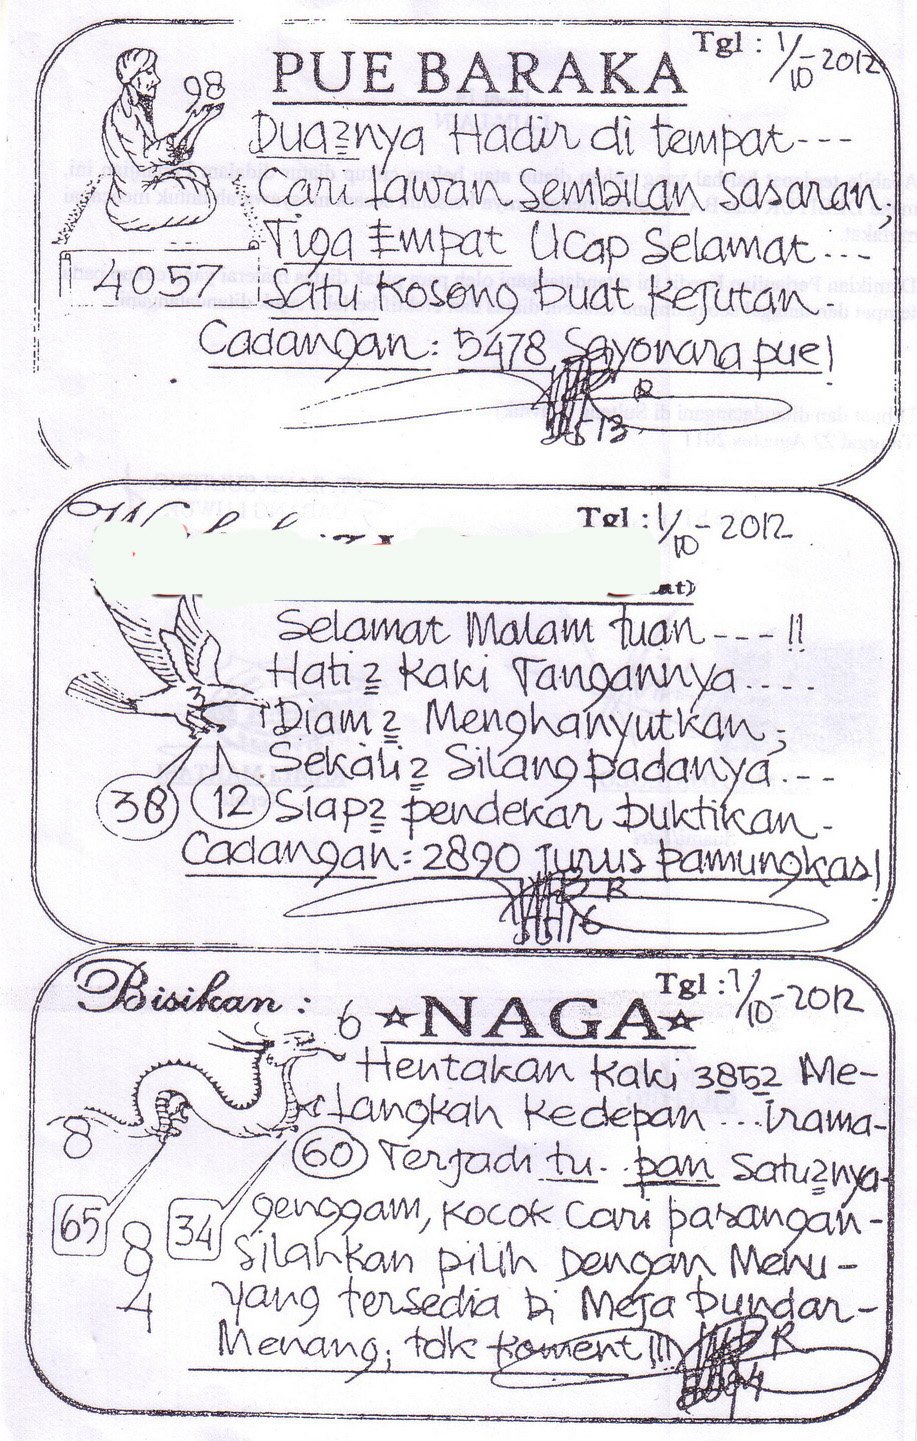 PUE BARAKA
Tgl : 1/10-2012
98
Dua2nya Hadir di tempat ---
Cari lawan Sembilan sasaran,
Tiga Empat Ucap Selamat ...
4067
Jadi Kosong buat Kejutan ...
Cadangan : 5478 Sayonara pue!
13
Tgl : 1/10-2012
at)
Selamat Malam tuan --- !!
Hati2 Kaki Tangannya ....
Diam2 Menghanyutkan,
Sekali2 Silang padanya ---
38 12 Siap2 pendekar buktikan -
Cadangan = 2890 Jurus pamungkas!
Bisikan :
☆NAGA☆
Tgl : 1/10-2012
6
Hentakan kaki 3852 Me-
langkah kedepan ... irama-
8
60 Terjadi tu.. pan Satu2nya-
65 34 genggam, kocok cari pasangan-
8 Silahkan pilih Dengan Menu-
4 yang tersedia Di Meja bundar-
Menang, tdk koment !!!